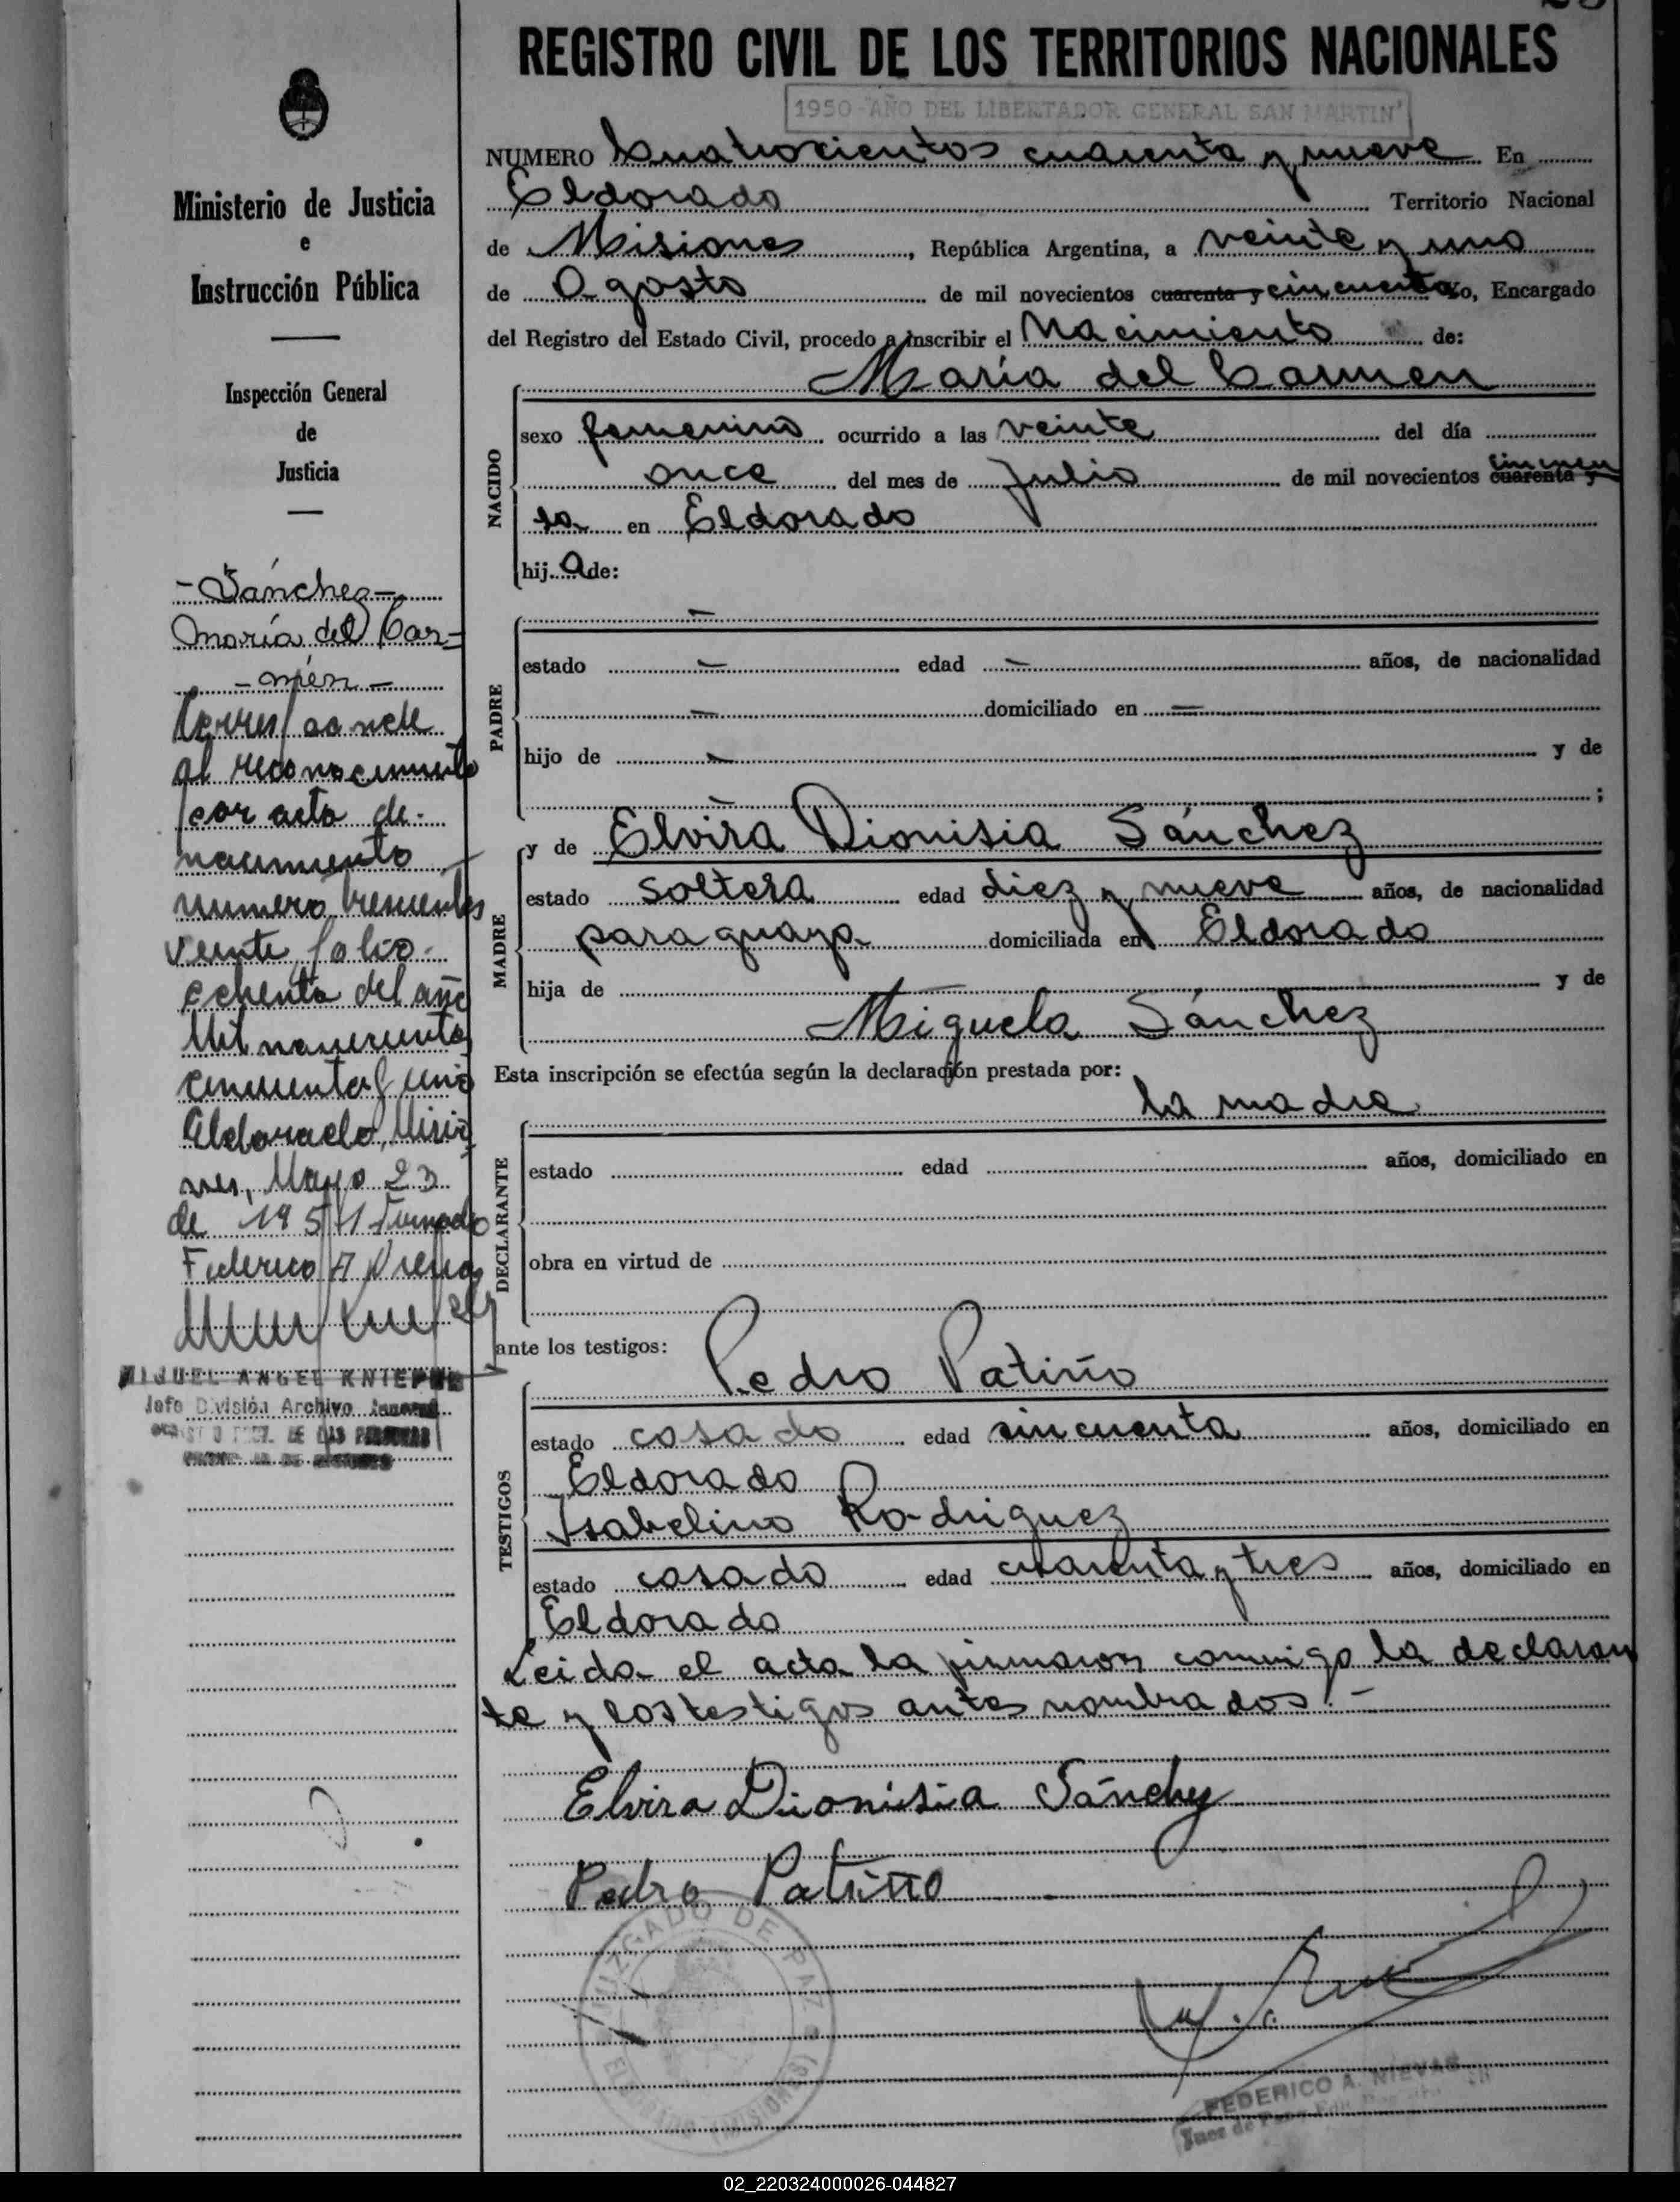 REGISTRO CIVIL DE LOS TERRITORIOS NACIONALES
1950-AÑO DEL LIBERTADOR GENERAL SAN MARTIN
NUMERO Cuatrocientos cuarenta y nueve En
Eldorado Territorio Nacional
de Misiones, República Argentina, a veinte y uno
de Agosto de mil novecientos cuarenta y cincuenta yo, Encargado
del Registro del Estado Civil, procedo a inscribir el Nacimiento de:
María del Carmen
NACIDO
sexo femenino ocurrido a las veinte del día
once del mes de Julio de mil novecientos cuarenta y cincuen
ta en Eldorado
hij a de:
PADRE
estado — edad — años, de nacionalidad
— domiciliado en —
hijo de — y de
— ;
MADRE
y de Elvira Dionisia Sánchez
estado soltera edad diez y nueve años, de nacionalidad
paraguaya domiciliada en Eldorado
hija de — y de
Miguela Sánchez
Esta inscripción se efectúa según la declaración prestada por:
la madre
DECLARANTE
estado edad años, domiciliado en
obra en virtud de
ante los testigos:
TESTIGOS
Pedro Patiño
estado casado edad cincuenta años, domiciliado en
Eldorado
Isabelino Rodriguez
estado casado edad cuarenta y tres años, domiciliado en
Eldorado
Leida el acta la firmaron conmigo la declaran
te y los testigos antes nombrados.-
Elvira Dionisia Sánchez
Pedro Patiño
JUZGADO DE PAZ
ELDORADO (MISIONES)
FEDERICO A. NIEVAS
Juez de Paz
Ministerio de Justicia
e
Instrucción Pública
Inspección General
de
Justicia
- Sánchez -
María del Car-
- men -
Corresponde
al reconocimiento
por acta de
nacimiento
numero trescientos
veinte folio
ochenta del año
Mil novecientos
cincuenta y uno
Eldorado, Misio
nes, Mayo 23
de 1951 Firmado
Federico A Nievas
MIGUEL ANGEL KNIEPHE
Jefe División Archivo General
DE LAS PERSONAS
02_220324000026-044827